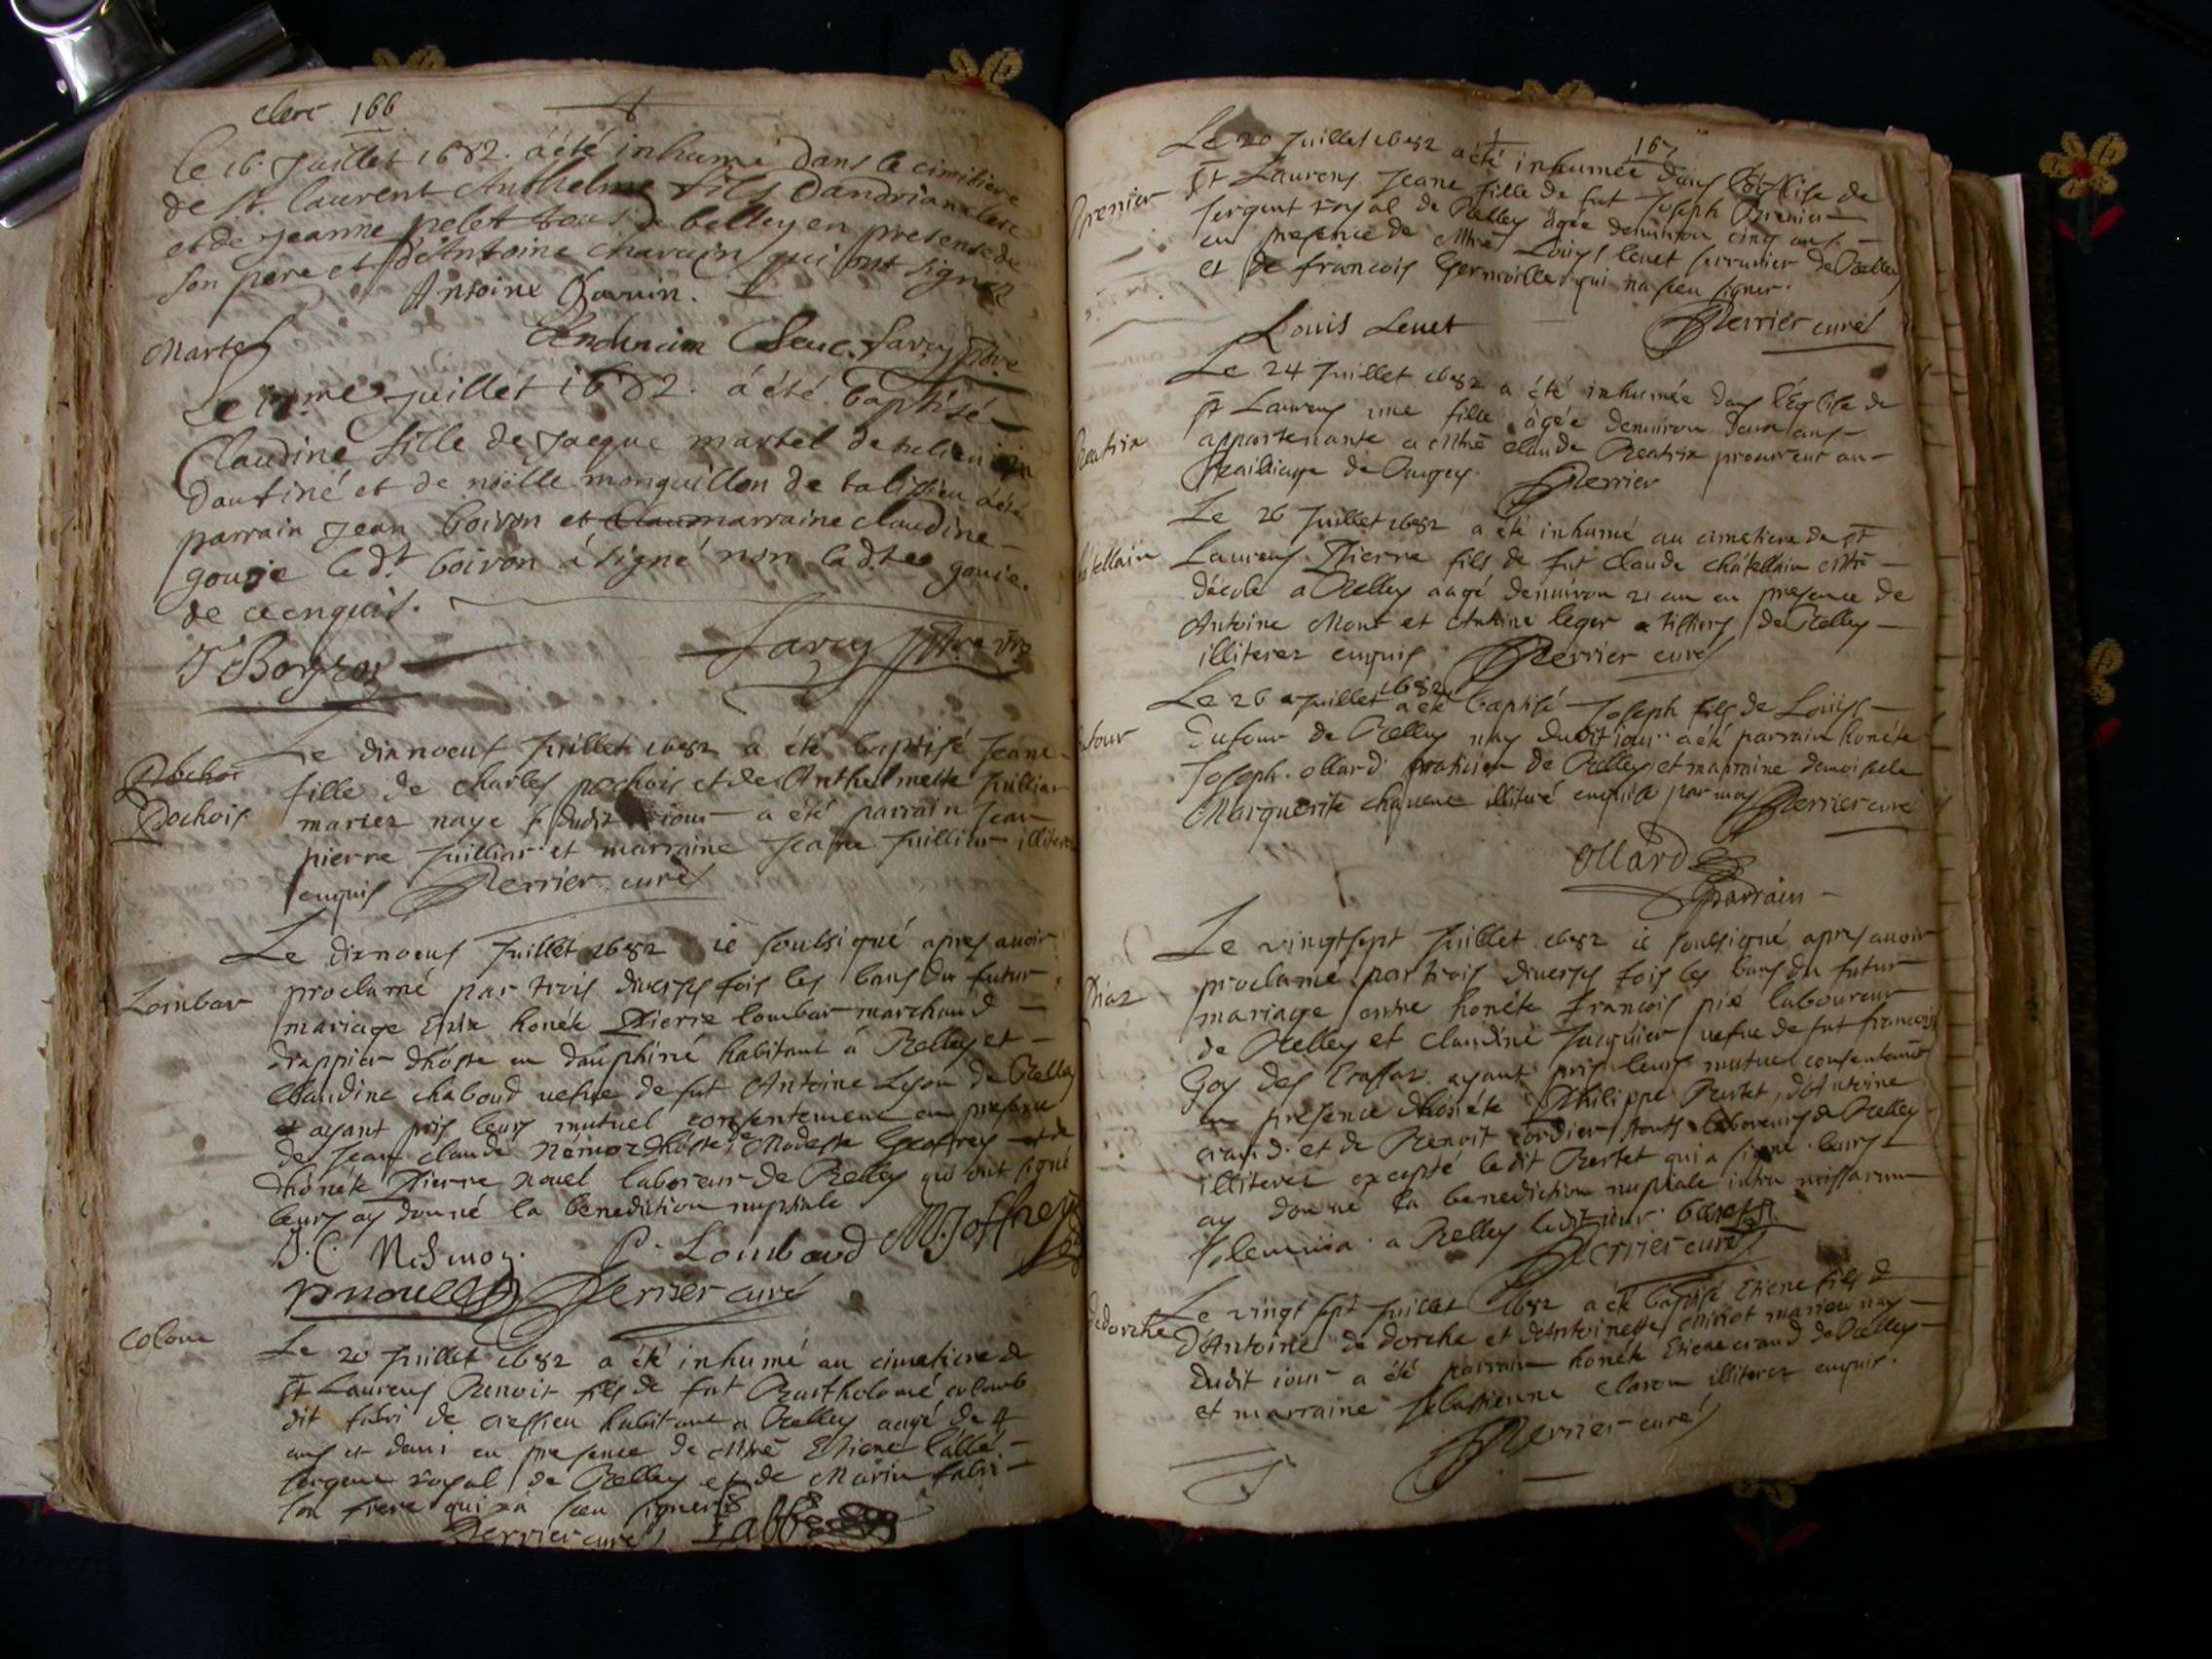 clerc 166
le 16. Juillet 1682. a été inhumé dans le cimitiere
de St. laurent Anthelme fils dandrian clerc
et de jeanne pelet tous de belley en presense de
son pere et d'Antoine charvin qui ont signez
Antoine Charvin.
Savey
Martel
Le 17me juillet 1682. á été baptisé
Claudine fille de jacque martel de
dautiné et de noëlle monguillon de talissieu a été
parrain jean boiron et marraine claudine
goujе le dt. boiron á signé non ladtee goujе.
de ce enquis.
J Boyron Savey
Le diznoeuf Juillet 1682 a été baptisé Jeane
Pochois
fille de charles pochois et de Anthelmette Juilliar
mariez naye dudit iour a été parrain Jean
pierre Juilliar et marraine Jeane Juilliar illiterez
enquis Perrier curé
Le diznoeuf Juillet 1682 ie soubsigné apres auoir
Lombar
proclamé par trois diverses fois les bans du futur
mariage entre honéte Pierre lombar marchand
drappier dhoste en dauphiné habitant à Belley et
Claudine chaboud uefve de fut Antoine Lyon de Belley
ayant pris leurs mutuel consentement en presence
de Jean claude Némoz dhoste, de Modeste Geoffrey et de
dhónéte Pierre nouel laboreur de Belley qui ont signé
leurs ay donné la benediction nuptiale
J. C. Nesmoz. P. Lombard M. Joffrey
pnouel Perrier curé
Colomb
Le 20 Juillet 1682 a été inhumé au cimetiere de
St Laurens Benoit fils de fut Bartholomé colomb
dit fabri de cressieu habitant a Belley aagé de 4
ans et demi en presence de Mtre Etiene l'abbé
sergent royal de Belley et de Marin fabri
son frere qui n'a sceu signer
Perrier curé Labbé
167
Le 20 Juillet 1682 a été inhumée dans l'Eglise de
Brenier
St Laurens Jeane fille de fut Joseph Brenier
sergent royal de Belley âgée denuiron cinq ans
en presence de Mtre Louys leuet serrurier de Belley
et de francois Germoille qui na sceu signer.
Louis Leuet Perrier curé
Le 24 Juillet 1682 a été inhumée dans l'Eglise de
Beatrix
St Laurens une fille âgée denuiron deux ans
appartenante a Mtre claude Beatrix procureur au
Bailliage de Bugey. Perrier
Le 26 Juillet 1682 a été inhumé au cimetiere de St
Laurens Pierre fils de fut claude châtellain Mtre
d'école a Belley aagé denuiron 21 an en presence de
Antoine Mont et Antoine leger de Belley
illiterez enquis Perrier curé
Le 26 Juillet 1682 a été baptisé Joseph fils de Louys
Dufour de Belley nay dudit iour a été parrain honéte
Joseph ollard praticien de Belley et marraine demoiselle
Marguerite illiteré enquise par moy Perrier curé
Ollard
Parrain
Le vingtsept Juillet 1682 ie soubsigné apres auoir
proclamé par trois diverses fois les bans du futur
mariage entre honéte francois pié laboureur
de Belley et claudine Jacquier uefue de fut francois
Goy des ayant pris leurs mutuel consentement
en presence dhonéte Philippe Bertet, d'Antoine
craud et de Benoit Cordier touts laboreurs de Belley
illiterez excepté ledit Bertet qui a signé. leurs
ay donné la benediction nuptiale intra missarum
solemnia a Belley ledit iour. bertet
Perrier curé
Dedorche
Le vingt sept Juillet 1682 a été baptisé Etiene fils de
d'Antoine de dorche et d'Antoinette mariez nay
dudit iour a été parrain honéte Etiene craud de Belley
et marraine sebastienne claron illiterez enquis.
Perrier curé